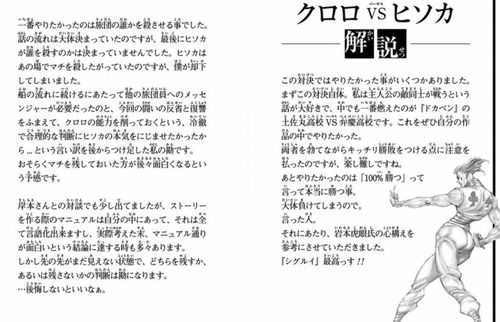 クロロVSヒソカ
解説
この対決ではやりたかった事がいくつかありました。
まずこの対決自体。私は主人公の敵同士が戦うという
話が大好きで、中でも一番燃えたのが『ドカベン』の
土佐丸高校VS弁慶高校です。これをぜひ自分の作
品の中でやりたかった。
両者を勃てながらキッチリ勝敗をつける点に注意を
払ったのですが、楽し難しですね。
あとやりたかったのは「100%勝つ」って
言って本当に勝つ事。
大体負けてしまうので。
言った人。
それにあたり、岩本虎眼氏の心構えを
参考にさせていただきました。
『シグルイ』最高っす!!
一番やりたかったのは旅団の誰かを殺させる事でした。
話の流れは大体決まっていたのですが、最後にヒソカ
が誰を殺すのかは決まっていませんでした。ヒソカは
あの場でマチを殺したがっていたのですが、僕が却下
してしまいました。
船の流れに続けるにあたって他の旅団員へのメッセ
ンジャーが必要だったのと、今回の闘いの反省と復讐
をふまえて、クロロの能力を削っておくという、冷徹
で合理的な判断にヒソカの本気をにじませたかったか
ら…という言い訳を後からつけ足した私の勘です。
おそらくマチを残しておいた方が後々面白くなるとい
う予感です。
岸本さんとの対談でも少し出てましたが、ストーリー
を作る際のマニュアルは自分の中にあって、それは全
て言語化出来ますし、実際考えた末、マニュアル通り
が面白いという結論に達する時も多々あります。
しかし先の先がまだ見えない状態で、どちらを残すか、
あるいは残さないかの判断は勘になります。
…後悔しないといいなぁ。